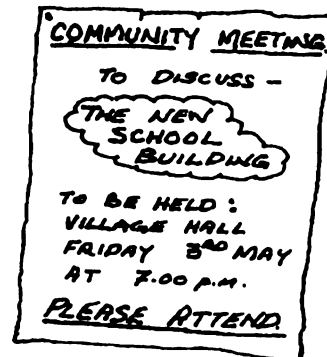 COMMUNITY MEETING
TO DISCUSS -
THE NEW
SCHOOL
BUILDING
TO BE HELD:
VILLAGE HALL
FRIDAY 3RD MAY
AT 7.00 p.m.
PLEASE ATTEND.